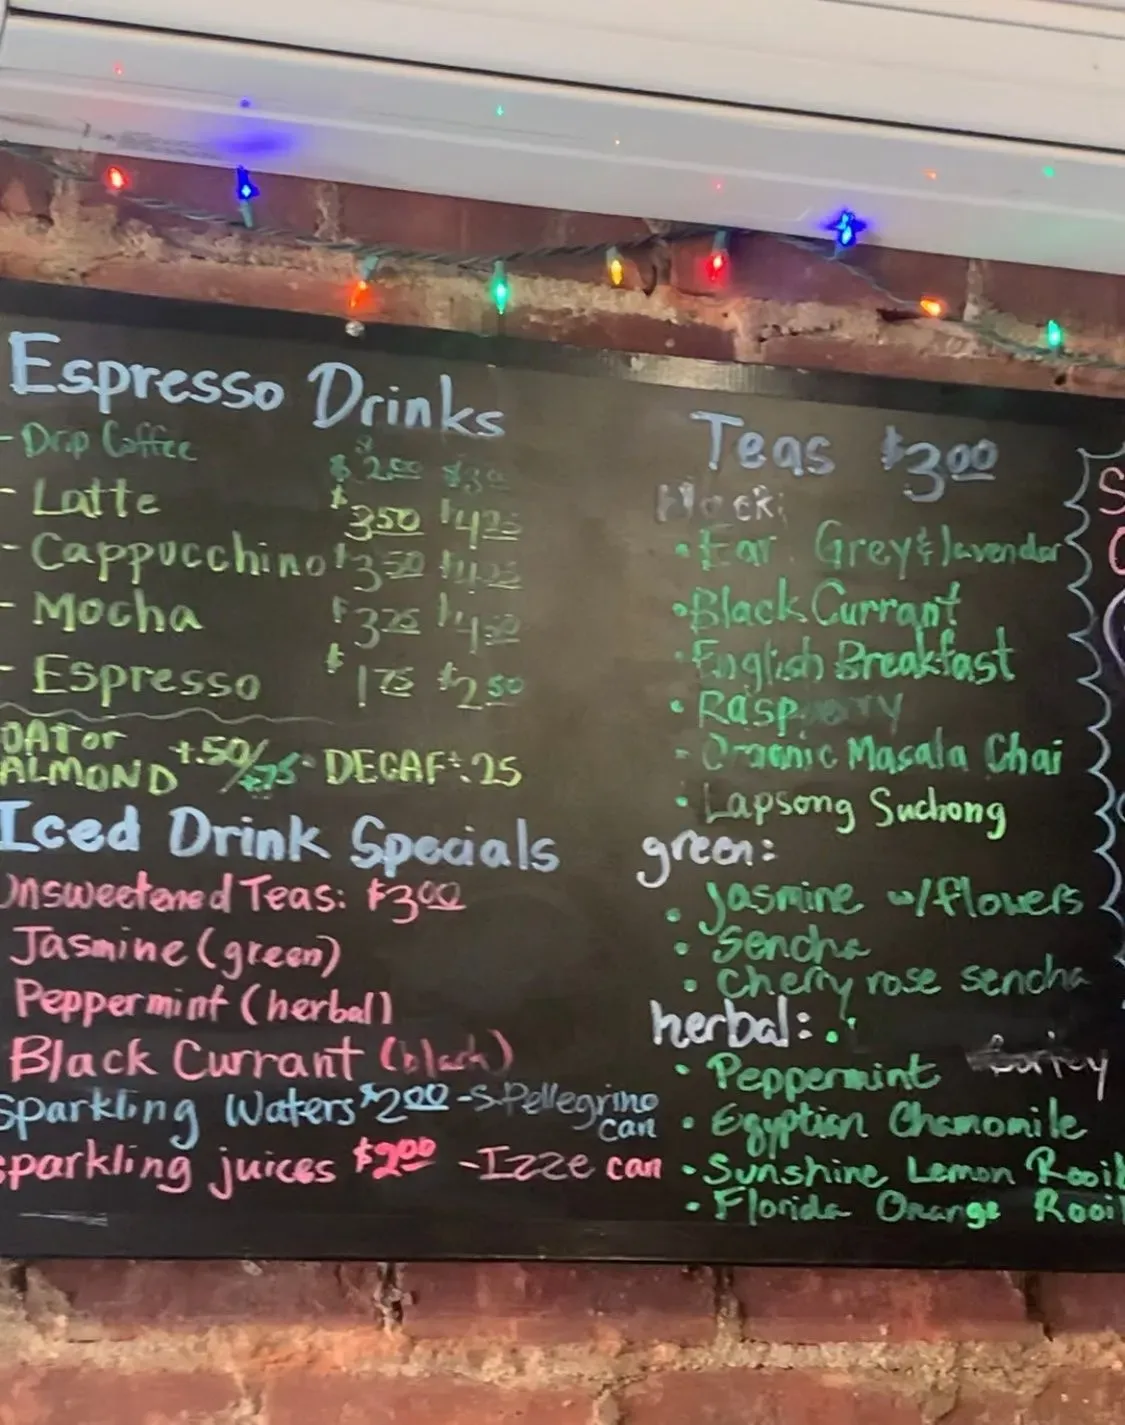 Espresso Drinks
- Drip Coffee $2.00
- Latte $3.50 $4.25
- Cappucchino $3.50 $4.25
- Mocha $3.75 $4.50
- Espresso $1.75 $2.50
OAT or ALMOND +.50/+.75 DECAF+.25
Iced Drink Specials
Unsweetened Teas: $3.00
Jasmine (green)
Peppermint (herbal)
Black Currant (black)
Sparkling Waters $2.00 - S.Pellegrino can
sparkling juices $2.00 - Izze can
Teas $3.00
black:
• Ear Grey & lavender
• Black Currant
• English Breakfast
• Raspberry
• Organic Masala Chai
• Lapsong Suchong
green:
• Jasmine w/flowers
• Sencha
• Cherry rose sencha
herbal:
• Peppermint
• Egyptian Chamomile
• Sunshine Lemon Rooib
• Florida Orange Rooib